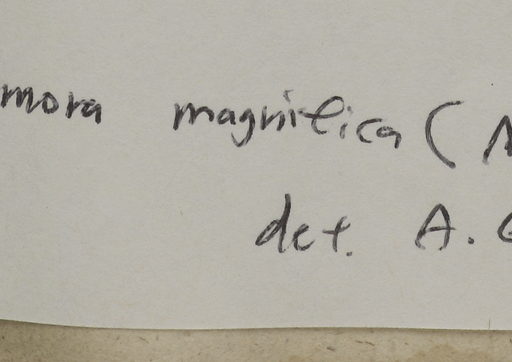 mora magnifica (
det. A.